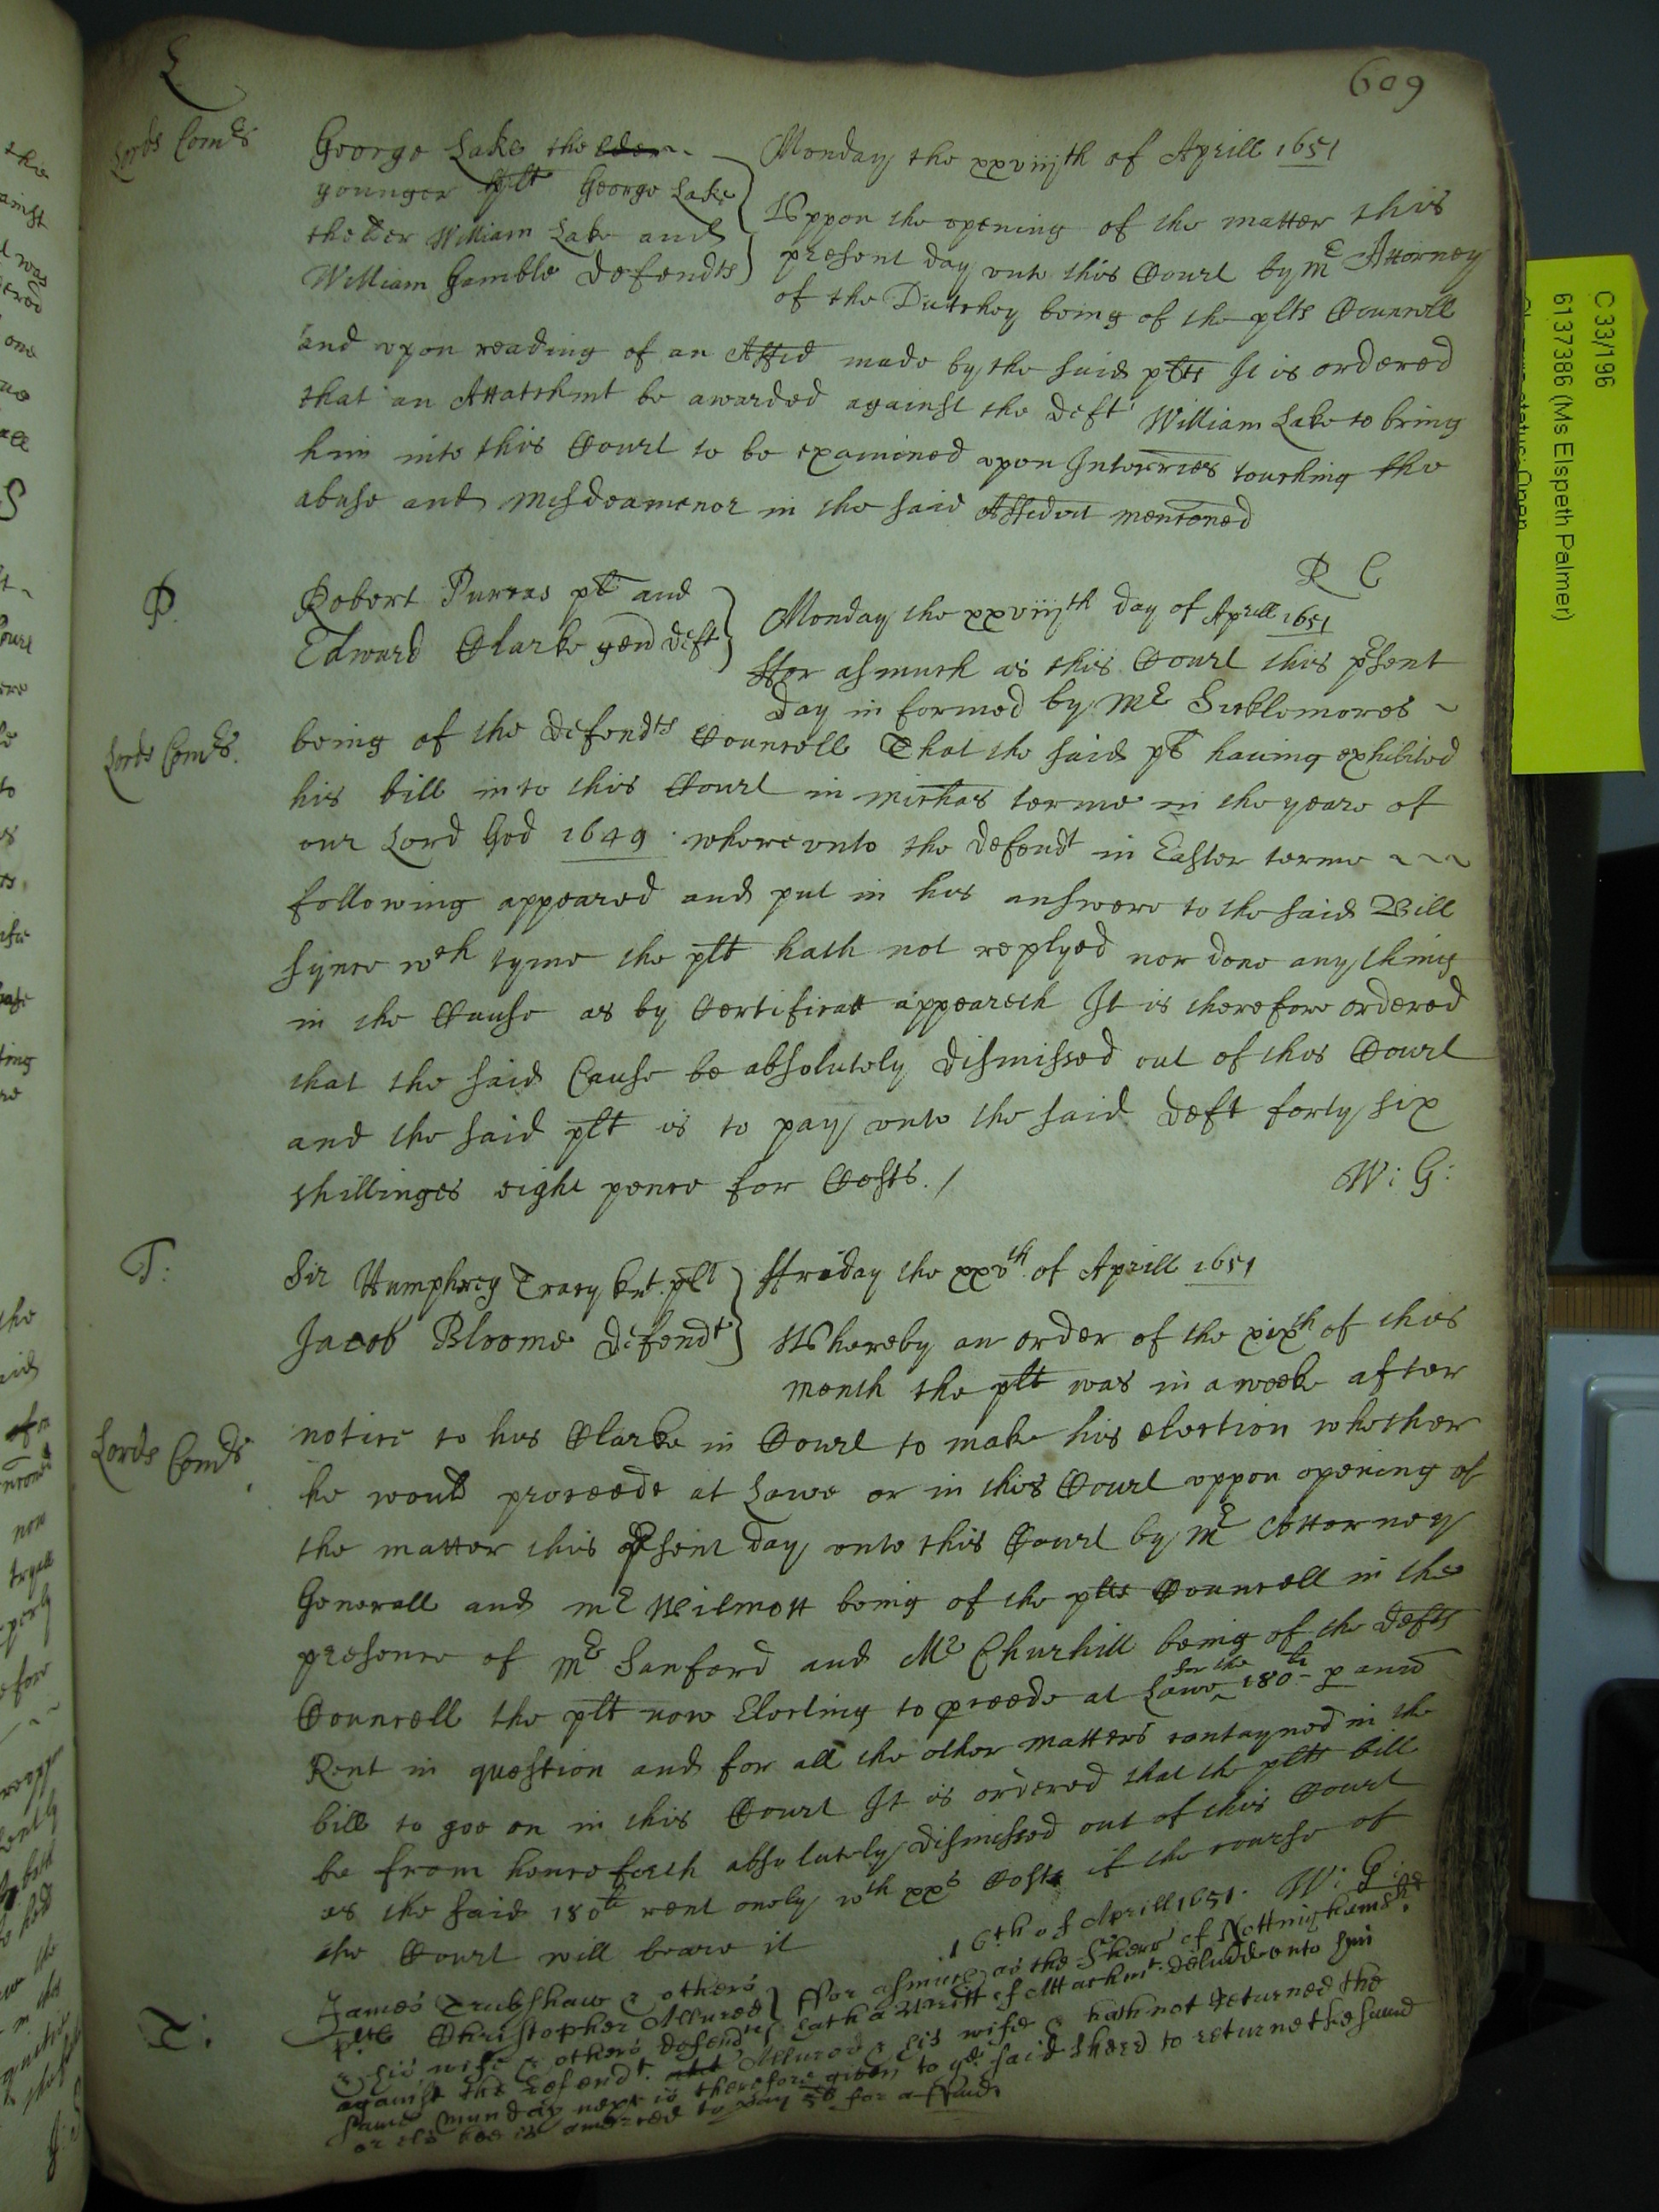 L
609
Lords Comrs
George Lake the elder
younger plt George Lake
the elder William Lake and
William Gamble Defendts
Monday the xxviijth of Aprill 1651
Uppon the opening of the matter this
present day unto this Court by Mr Attorney
of the Dutchey being of the plts Councell
and upon reading of an Affid made by the said plts It is ordered
that an Attatchmt be awarded against the Deft William Lake to bring
him into this Court to be examined upon Interries touching the
abuse and misdeamenor in the said Affidvit mentoned
R C
P.
Robert Purcas plt and
Edward Clarke gen deft
Monday the xxviijth day of Aprill 1651
Ffor asmuch as this Court this psent
day in formed by Mr Sicklemores
Lords Comrs.
being of the Defendts Councell That the said plt having exhibited
his bill into this Court in Michas terme in the yeare of
our Lord God 1649 whereunto the Defendt in Easter terme
following appeared and put in his answere to the said Bill
synce wch tyme the plt hath not replyed nor done any thing
in the Cause as by Certificatt appeareth It is therefore ordered
that the said Cause be absolutely Dismissed out of this Court
and the said plt is to pay unto the said Deft forty six
shillinges eight pence for Costs. /
W: G:
T:
Sir Humphrey Tracy knt. plt
Jacob Bloome Defendt
Ffriday the xxvth of Aprill 1651
Whereby an order of the xixth of this
month the plt was in a weeke after
Lords Comrs
notice to his Clarke in Court to make his election whether
he would proceede at Lawe or in this Court uppon opening of
the matter this psent day unto this Court by Mr Attorney
Generall and Mr Wilmott being of the plts Councell in the
presence of Mr Sanford and Mr Churhill being of the Defts
Councell the plt now Electing to proceede at Lawe for the 180li p ann
Rent in question and for all the other matters contayned in the
bill to goe on in this Court It is ordered that the plts bill
be from henceforth absolutely Dismissed out of this Court
as the said 180li rent onely wth xxs Costs if the course of
the Court will beare it
W: G:
16th of Aprill 1651.
T:
James Trubshaw & others
plts Christopher Allured
& his wife & others defendts
Ffor asmuch as the Sherr of Nottinghamsh
hath a Writt of Attachmt deludd unto him
against the defendt Allured & his wife & hath not returned the
same munday next is therefore given to ye said Shere to returne the said
or els hee is amerced to pay 5li for a ffind
C 33/196
6137386 (Ms Elspeth Palmer)